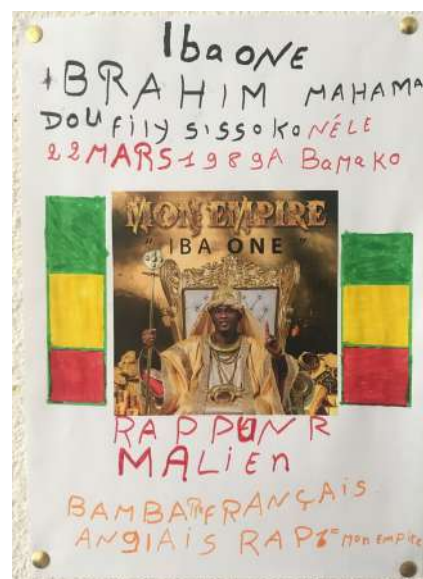 Iba ONE
IBRAHIM MAHAMA
DOUfily sissoko NÉLE
22 MARS 1989A BaMaKO
MON EMPIRE
"IBA ONE"
RAPPEUR
MALien
FRANÇAiS
ANGlAiS RAP Mon EMpiRe